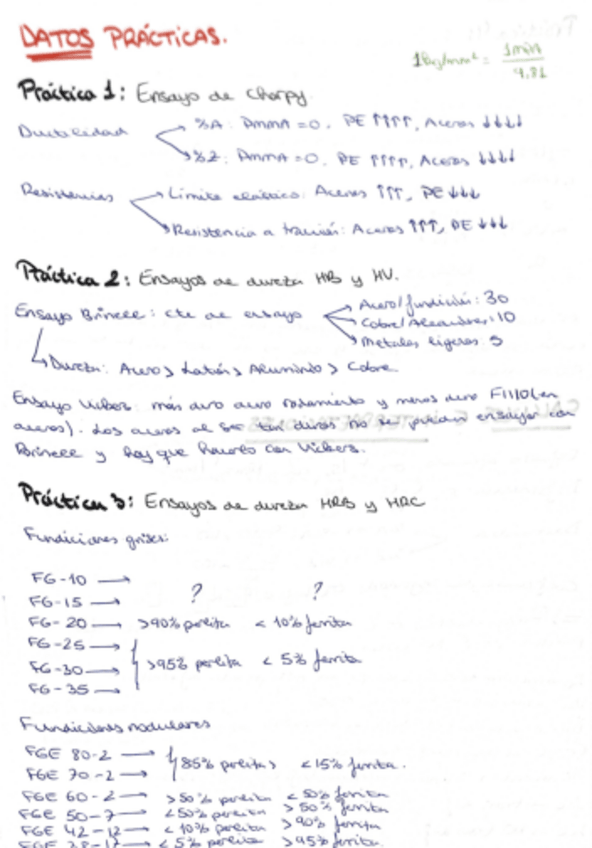 DATOS PRÁCTICAS.
1kg/mm² = 1min / 9.81
Práctica 1: Ensayo de Charpy.
Ductilidad
%A: PMMA = 0, PE ↑↑↑↑, Aceros ↓↓↓↓
%Z: PMMA = 0, PE ↑↑↑↑, Aceros ↓↓↓↓
Resistencias
Límite elástico: Aceros ↑↑↑, PE ↓↓↓
Resistencia a tracción: Aceros ↑↑↑, PE ↓↓↓
Práctica 2: Ensayos de dureza HB y HV.
Ensayo Brinell: cte de ensayo
Acero/fundición: 30
Cobre/Aleaciones: 10
Metales ligeros: 5
Dureza: Acero > Latón > Aluminio > Cobre
Ensayo Vickers: más duro acero rodamiento y menos duro F1110 (en
aceros). Los aceros al ser tan duros no se pueden ensayar con
Brinell y hay que hacerlo con Vickers.
Práctica 3: Ensayos de dureza HRB y HRC
Fundiciones grises:
FG-10 →
FG-15 → ? ?
FG-20 → >90% perlita < 10% ferrita
FG-25 →
FG-30 → >95% perlita < 5% ferrita
FG-35 →
Fundiciones nodulares
FGE 80-2 →
FGE 70-2 → 85% perlita > <15% ferrita.
FGE 60-2 → >50% perlita < 50% ferrita
FGE 50-7 → <50% perlita > 50% ferrita
FGE 42-12 → < 10% perlita > 90% ferrita
FGE 38-17 → < 5% perlita > 95% ferrita.